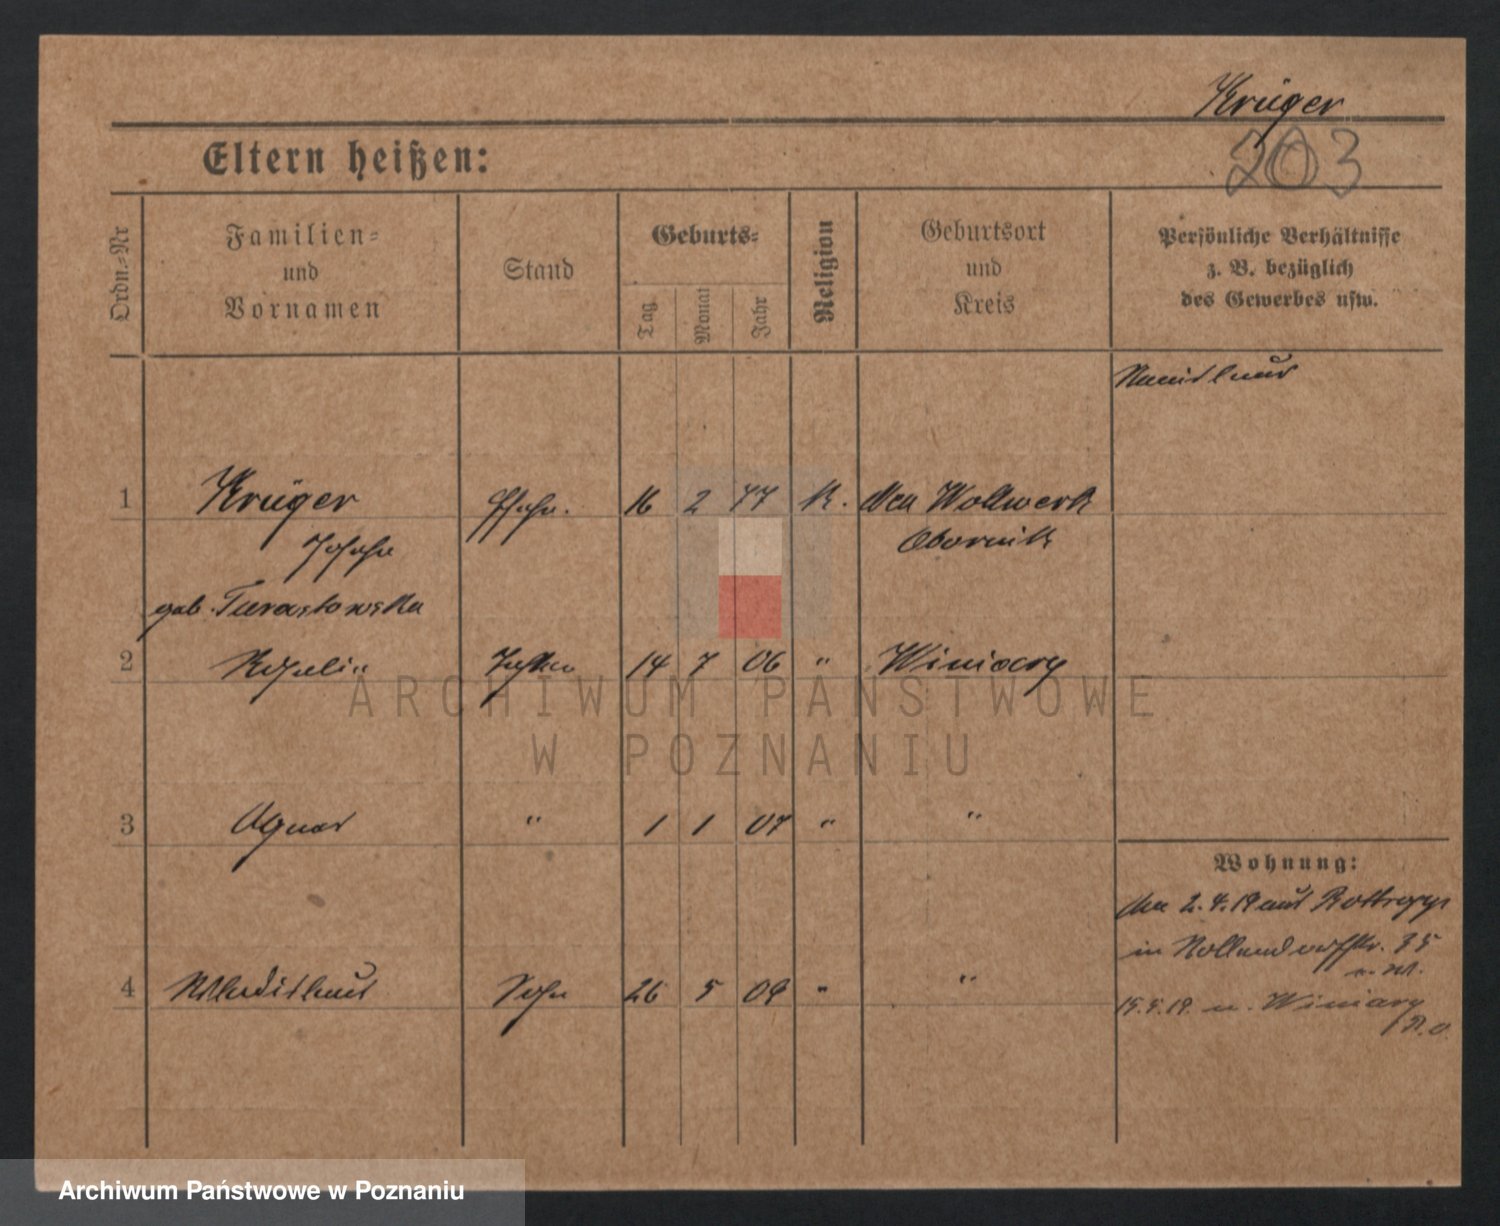 Krüger
203
Eltern heißen:
Ordn.-Nr
Familien-
und
Vornamen
Stand
Geburts-
Tag
Monat
Jahr
Religion
Geburtsort
und
Kreis
Persönliche Verhältnisse
z. B. bezüglich
des Gewerbes usw.
1 Krüger 16 2 77 K. Wollwerk
Josefa Obornik
geb.
2 Rosalia 14 7 06 " Winiary
3 Agnes " 1 1 07 " "
Wohnung:
2.4.19 aus
in Nollendorfstr. 35
4 Wladislaus Sohn 26 5 09 " "
15.5.19. n. Winiary
ARCHIWUM PAŃSTWOWE
W POZNANIU
Archiwum Państwowe w Poznaniu